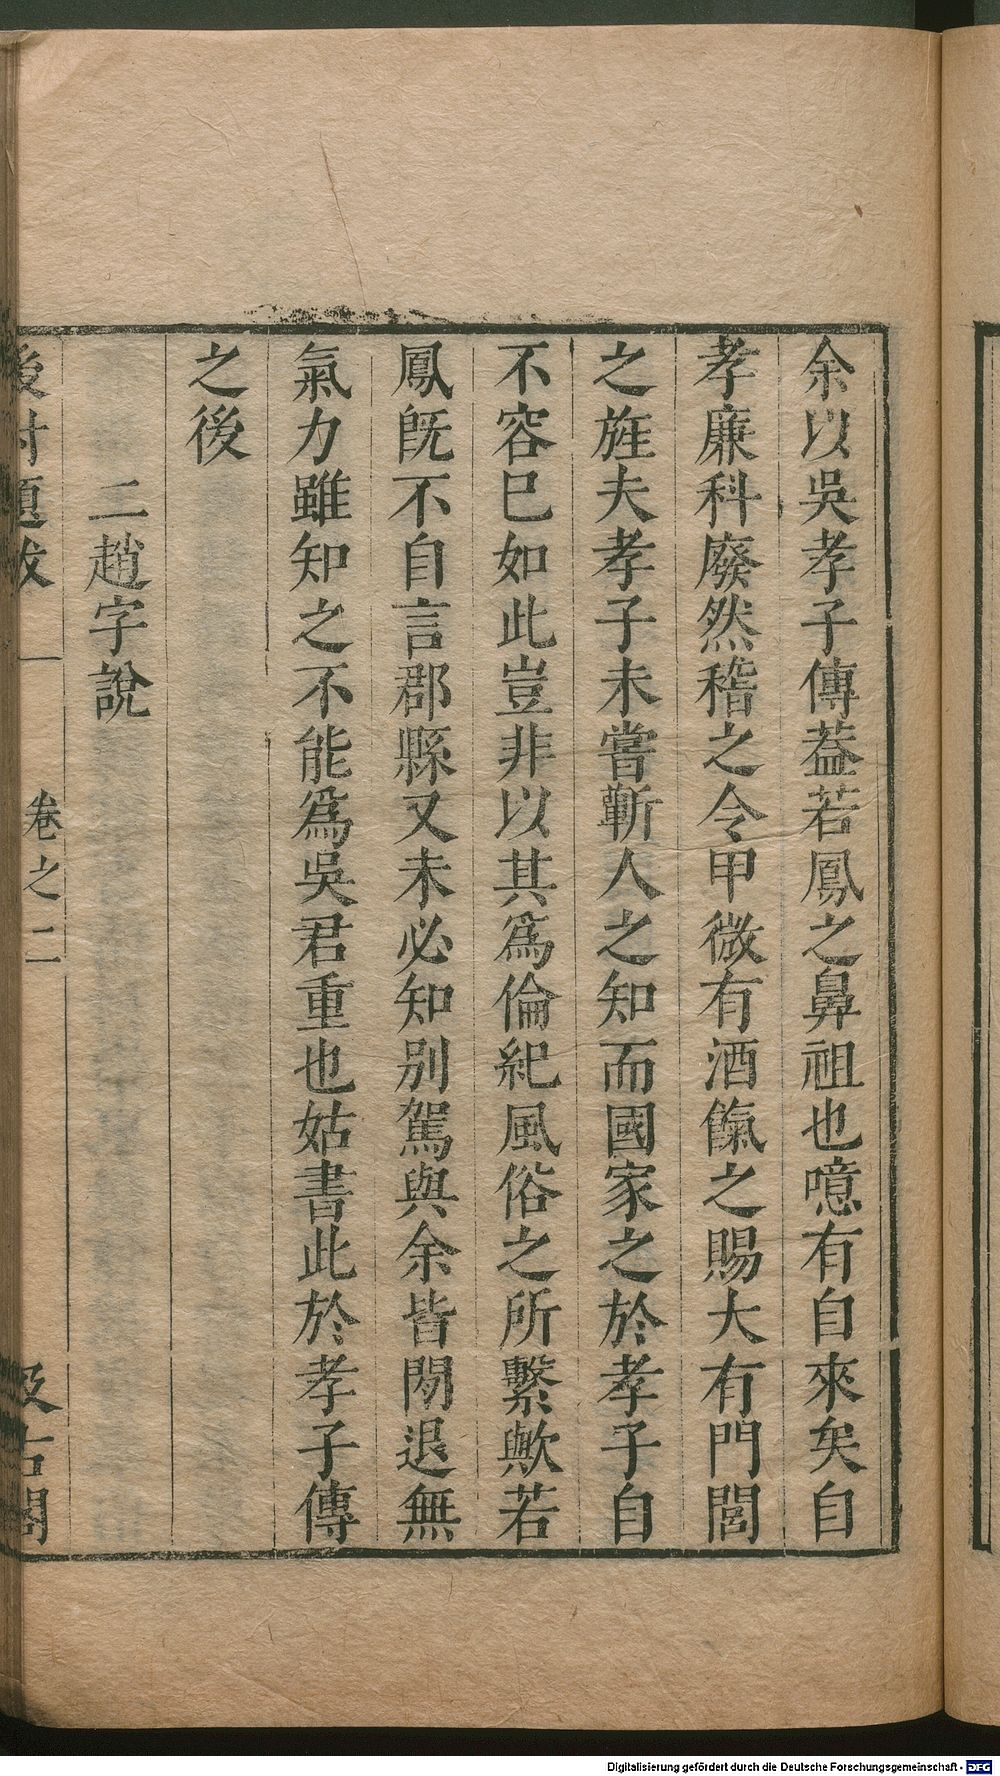 余以吳孝子傳葢若鳳之鼻祖也噫有自來矣自
孝廉科廢然稽之令甲微有酒餼之賜大有門閭
之旌夫孝子未嘗蘄人之知而國家之於孝子自
不容已如此豈非以其爲倫紀風俗之所繫歟若
鳳旣不自言郡縣又未必知別駕與余皆閒退無
氣力雖知之不能爲吳君重也姑書此於孝子傳
之後
二趙字說
後村題跋 一 卷之二 汲古閣
Digitalisierung gefördert durch die Deutsche Forschungsgemeinschaft - DFG